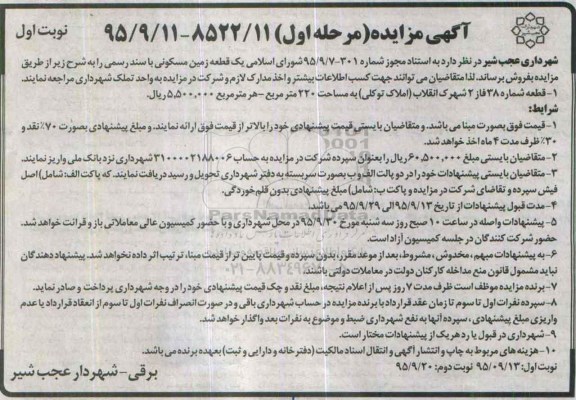 آگهی مزایده (مرحله اول) ۹۵/۹/۱۱-۸۵۲۲/۱۱
نوبت اول
شهرداری عجب شیر در نظر دارد به استناد مجوز شماره ۳۰۱-۹۵/۹/۷ شورای اسلامی یک قطعه زمین مسکونی با سند رسمی را به شرح زیر از طریق
مزایده بفروش برساند. لذا متقاضیان می توانند جهت کسب اطلاعات بیشتر و اخذ مدارک لازم و شرکت در مزایده به واحد تملک شهرداری مراجعه نمایند.
۱- قطعه شماره ۳۸ فاز ۲ شهرک انقلاب (املاک توکلی) به مساحت ۲۲۰ متر مربع - هر متر مربع ۵,۵۰۰,۰۰۰ ریال.
شرایط:
۱- قیمت فوق بصورت مبنا می باشد. و متقاضیان بایستی قیمت پیشنهادی خود را بالاتر از قیمت فوق ارائه نمایند. و مبلغ پیشنهادی بصورت ۷۰٪ نقد و
۳۰٪ ظرف مدت ۴ ماه اخذ خواهد شد.
۲- متقاضیان بایستی مبلغ ۶۰,۵۰۰,۰۰۰ ریال را بعنوان سپرده شرکت در مزایده به حساب ۳۱۰۰۰۰۲۱۸۸۰۰۶ شهرداری نزد بانک ملی واریز نمایند.
۳- متقاضیان بایستی پیشنهادات خود را در دو پاکت الف و ب بصورت سربسته به دفتر شهرداری تحویل و رسید دریافت نمایند. که پاکت الف: شامل) اصل
فیش سپرده و تقاضای شرکت در مزایده و پاکت ب: شامل) مبلغ پیشنهادی بدون قلم خوردگی.
۴- مدت قبول پیشنهادات از تاریخ ۹۵/۹/۱۳ الی ۹۵/۹/۲۹ می باشد.
۵- پیشنهادات واصله در ساعت ۱۰ صبح روز سه شنبه مورخ ۹۵/۹/۳۰ در محل شهرداری و با حضور کمیسیون عالی معاملاتی باز و قرائت خواهد شد.
حضور شرکت کنندگان در جلسه کمیسیون آزاد است.
۶- به پیشنهادات مبهم، مخدوش، مشروط، بعد از موعد مقرر، بدون سپرده و قیمت پایین تر از قیمت مبنا، ترتیب اثر داده نخواهد شد. پیشنهاد دهندگان
نباید مشمول قانون منع مداخله کارکنان دولت در معاملات دولتی باشند.
۷- برنده مزایده موظف است ظرف مدت ۷ روز پس از اعلام نتیجه، مبلغ نقد و چک قیمت پیشنهادی خود را در وجه شهرداری پرداخت و صادر نماید.
۸- سپرده نفرات اول تا سوم تا زمان عقد قرارداد با برنده مزایده در حساب شهرداری باقی و در صورت انصراف نفرات اول تا سوم از انعقاد قرارداد یا عدم
واریزی مبلغ پیشنهادی، سپرده آنها به نفع شهرداری ضبط و موضوع به نفرات بعد واگذار خواهد شد.
۹- شهرداری در قبول یا رد هر یک از پیشنهادات مختار است.
۱۰- هزینه های مربوط به چاپ و انتشار آگهی و انتقال اسناد مالکیت (دفترخانه و دارایی و ثبت) بعهده برنده می باشد.
نوبت اول: ۹۵/۰۹/۱۳ نوبت دوم: ۹۵/۹/۲۰
برقی - شهردار عجب شیر
ParsNamadData